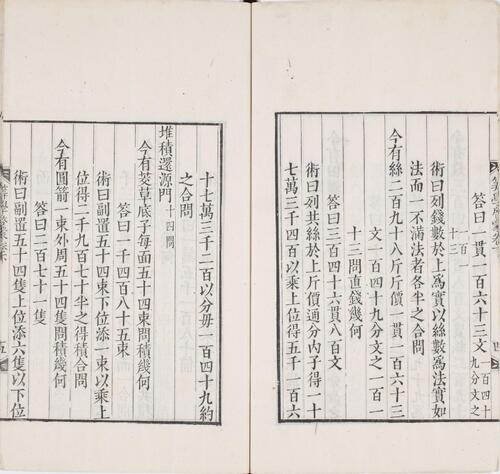 答曰一貫一百六十三文一百四十九分文之一百一十三
術曰列錢數於上爲實以絲數爲法實如
法而一不滿法者各半之合問
今有絲二百九十八斤斤價一貫一百六十三
文一百四十九分文之一百一
十三問直錢幾何
答曰三百四十六貫八百文
術曰列共絲於上斤價通分內子得一十
七萬三千四百以乘上位得五千一百六
十七萬三千二百以分毋一百四十九約
之合問
堆積還源門十四問
今有茭草底子每面五十四束問積幾何
答曰一千四百八十五束
術曰副置五十四束下位添一束以乘上
位得二千九百七十半之得積合問
今有圓箭一束外周五十四隻問積幾何
答曰二百七十一隻
術曰副置五十四隻上位添六隻以下位
五